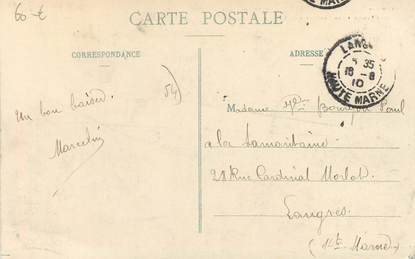 60 €
CARTE POSTALE
CORRESPONDANCE
ADRESSE
LANG
35
18 - 8
10
HAUTE MARNE
54)
un bon baiser.
Marcelin
Madame Paul
à la Samaritaine
Rue Cardinal Morlot.
Langres.
(Hte Marne)